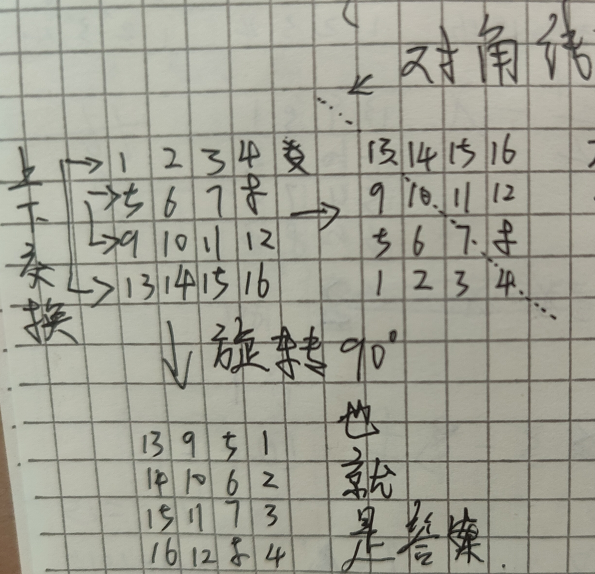 对角线
上下交换
1 2 3 4 变
5 6 7 8
9 10 11 12
13 14 15 16
13 14 15 16
9 10 11 12
5 6 7 8
1 2 3 4
旋转90°
13 9 5 1
14 10 6 2
15 11 7 3
16 12 8 4
也
就
是结果.